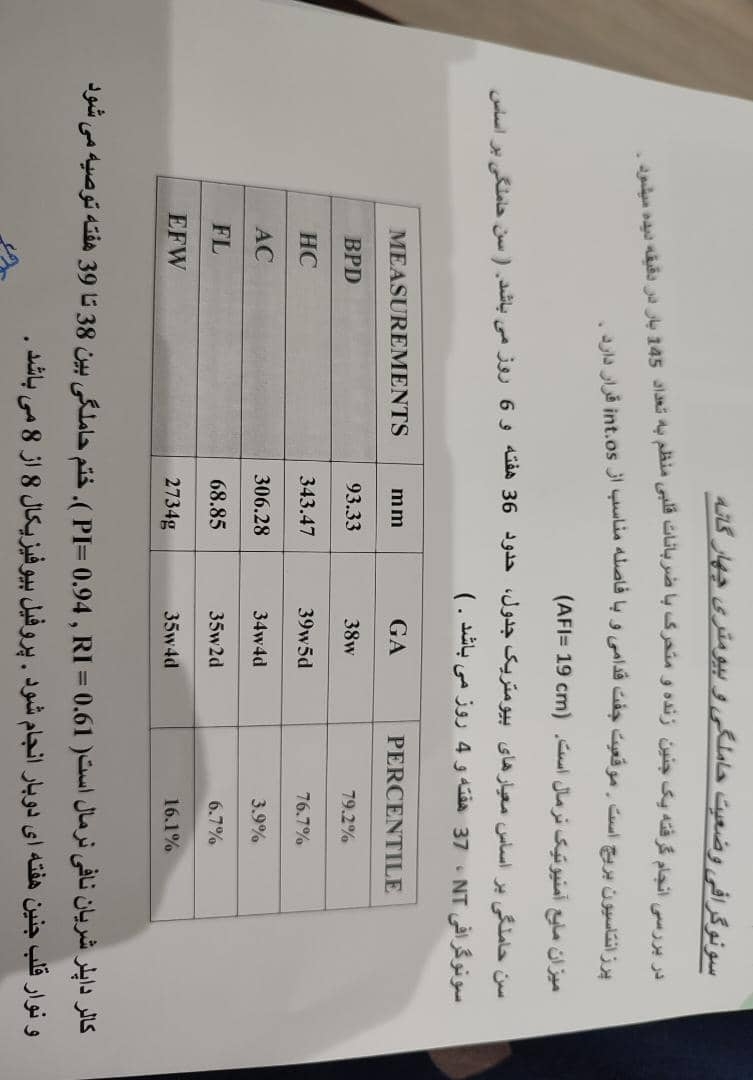 سونوگرافی وضعیت حاملگی و بیومتری چهار گانه
در بررسی انجام گرفته یک جنین زنده و متحرک با ضربانات قلبی منظم به تعداد 145 بار در دقیقه دیده میشود .
پرزانتاسیون بریچ است . موقعیت جفت قدامی و با فاصله مناسب از int.os قرار دارد .
میزان مایع آمنیوتیک نرمال است. (AFI= 19 cm)
سن حاملگی بر اساس معیارهای بیومتریک جدول، حدود 36 هفته و 6 روز می باشد. ( سن حاملگی بر اساس
سونوگرافی NT ، 37 هفته و 4 روز می باشد . )
MEASUREMENTS mm GA PERCENTILE
BPD 93.33 38w 79.2%
HC 343.47 39w5d 76.7%
AC 306.28 34w4d 3.9%
FL 68.85 35w2d 6.7%
EFW 2734g 35w4d 16.1%
کالر داپلر شریان نافی نرمال است( PI= 0.94 , RI = 0.61 ). ختم حاملگی بین 38 تا 39 هفته توصیه می شود
و نوار قلب جنین هفته ای دوبار انجام شود . پروفیل بیوفیزیکال 8 از 8 می باشد .